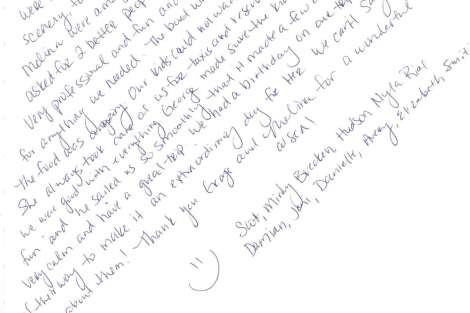 were
scenery
Melina were am
asked for 2 better peop
very professional and fun and
for anything we needed. The boat w
The food was amazing Our kids could not wan
She always took care of us for taxis and reserv
we were good with everything George made sure the ki
fun and he sailed us so smoothly that it made a few o
very calm and have a great trip. We had a birthday on one
f their way to make it an extraordinary day for her We can't sa
about them! Thank you George and Melina for a wonderful
:) week!
Scott, Mindy, Brecken, Hudson, Nyla Rial
Damian, Joni, Danielle, Avery, Elizabeth